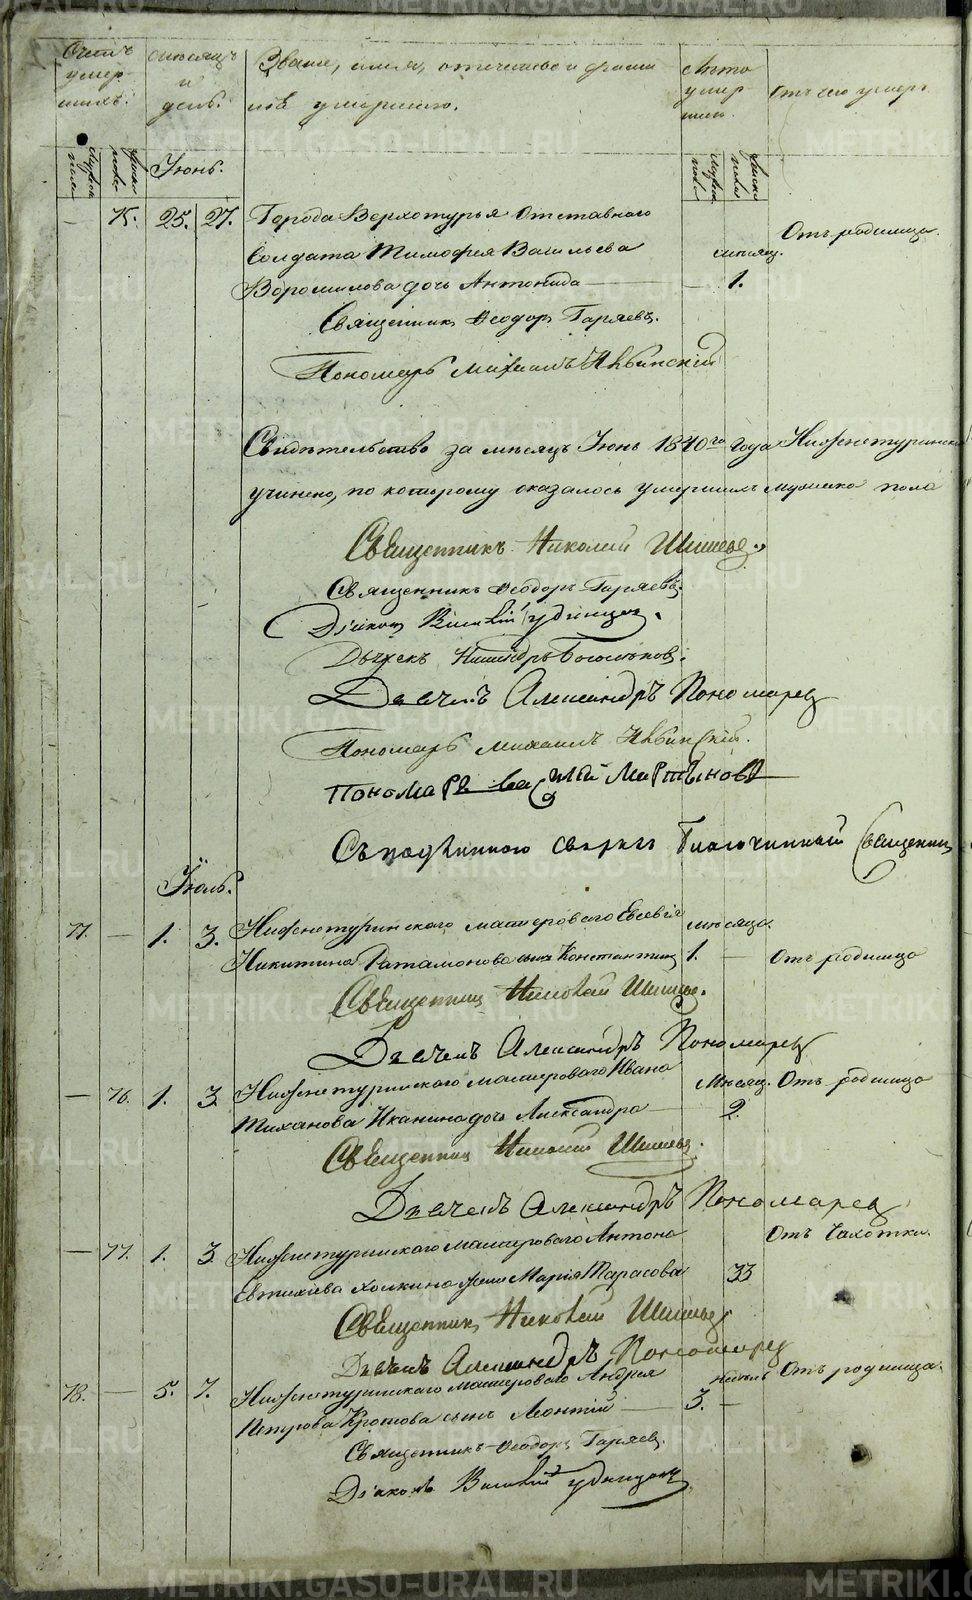 Счетъ умер-шихъ.
Мѣсяцъ и день.
Званіе, имя, отчество и фами-
лія умершаго.
Лѣта умер шаго
Отъ чего умеръ
Мужеск пола
Женск пола
Іюнь.
Мужск пола
Женска пола
— 75. 25. 27. Города Верхотурья Отставнаго
Солдата Тимофея Васильева
Ворошилова дочь Антонида — мѣсяц. 1. Отъ родимца.
Священникъ Ѳеодоръ Гаряевъ.
Пономарь Михаилъ Ивѣинскій
Свидѣтельство за мѣсяцъ Іюнь 1840го года Нижнетуринск
учинено, по которому оказалось умершихъ мужеска пола
Священникъ Николай Шишевъ
Священникъ Ѳеодоръ Гаряевъ.
Діаконъ Василій Удинцевъ.
Дьячекъ
Дьячекъ Александръ Пономаревъ
Пономарь Михаилъ
Пономарь Василій Мартыновъ
Съ подлиннымъ сверялъ Благочинный Священникъ
Іюль.
77. — 1. 3. Нижнетуринскаго мастероваго Евсевія
Никитина Ратамонова сынъ Константинъ мѣсяца 1. — Отъ родимца
Священникъ Николай Шишевъ.
Дьячекъ Александръ Пономаревъ
— 76. 1. 3. Нижнетуринскаго мастероваго Ивана
Тиханова Иканина дочь Александра — Мѣсяц. 2. Отъ родимца
Священникъ Николай Шишевъ.
Дьячекъ Александръ Пономаревъ
— 77. 1. 3. Нижнетуринскаго мастероваго Антона
Евтихіева Холкина жена Марія Тарасова 33 Отъ Чахотки.
Священникъ Николай Шишевъ
Дьячекъ Александръ Пономаревъ
78. — 5. 7. Нижнетуринскаго мастероваго Андрея
Петрова Кротова сынъ Леонтій — недѣль 3. — Отъ родимца.
Священникъ Ѳеодоръ Гаряевъ.
Діаконъ Василій Удинцевъ
METRIKI.GASO-URAL.RU